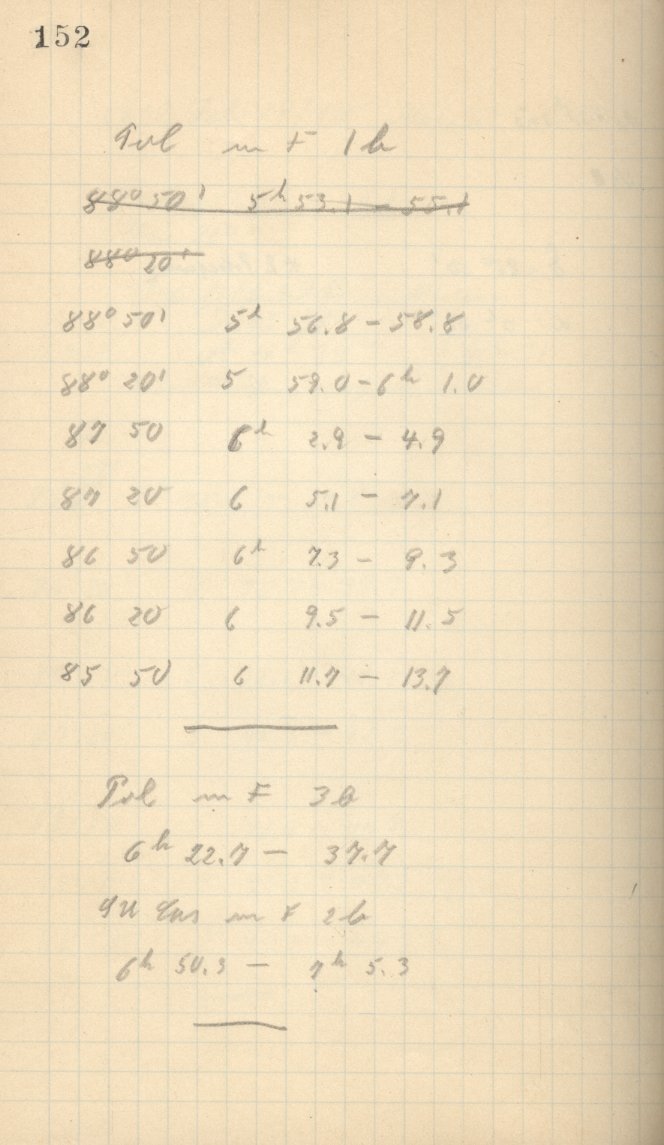 152
Pol m F 1b
88° 50' 5h 53.1 - 55.1
88° 20'
88° 50' 5h 56.8 - 58.8
88° 20' 5 59.0 - 6h 1.0
87 50 6h 2.9 - 4.9
87 20 6 5.1 - 7.1
86 50 6h 7.3 - 9.3
86 20 6 9.5 - 11.5
85 50 6 11.7 - 13.7
Pol m F 3b
6h 22.7 - 37.7
m F 2b
6h 50.3 - 7h 5.3